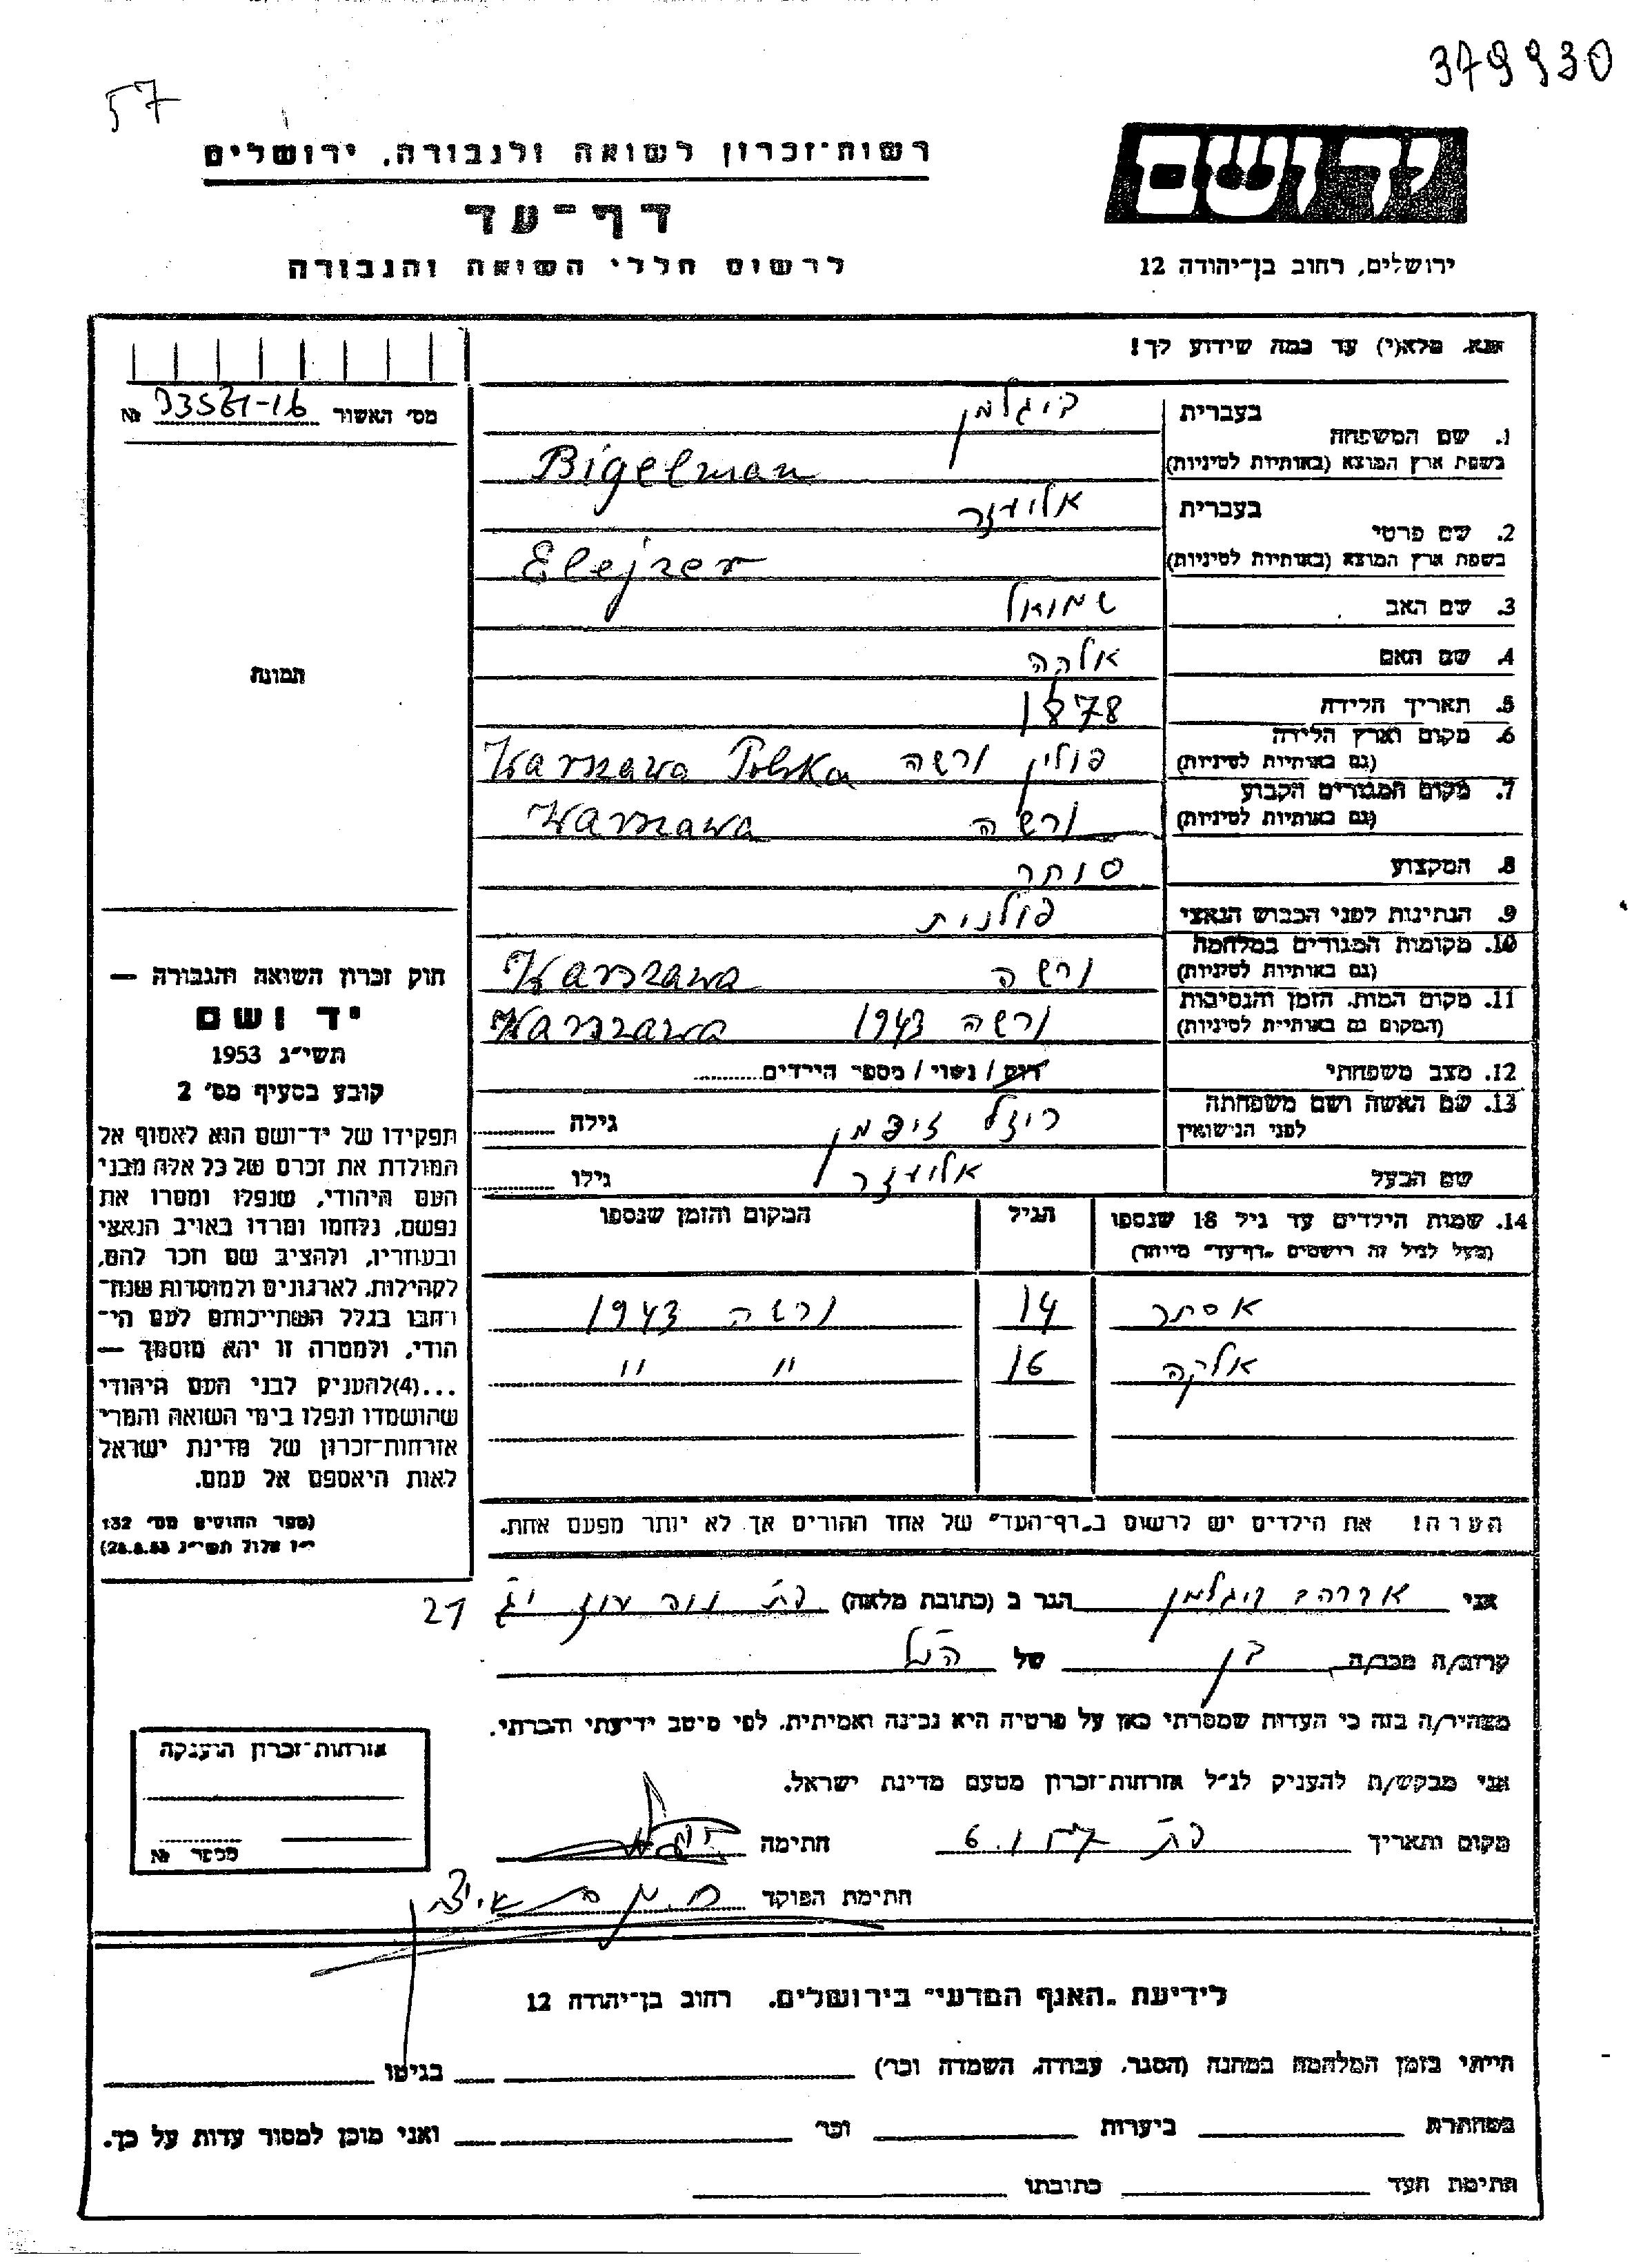 379930
57
יד ושם
רשות־זכרון לשואה ולגבורה, ירושלים
דף־עד
לרשום חללי השואה והגבורה
ירושלים, רחוב בן־יהודה 12
אנא, מלא(י) עד כמה שידוע לך!
מס' האשור №
בעברית ביגלמן
1. שם המשפחה
בשפת ארץ המוצא (באותיות לטיניות) Bigelman
בעברית אליעזר
2. שם פרטי
בשפת ארץ המוצא (באותיות לטיניות) Elejzer
3. שם האב שמואל
4. שם האם אלקה
5. תאריך הלידה 1878
6. מקום וארץ הלידה
(גם באותיות לטיניות) פולין ורשה Warszawa Polska
7. מקום המגורים הקבוע
(גם באותיות לטיניות) ורשה Warszawa
8. המקצוע סוחר
9. הנתינות לפני הכבוש הנאצי פולנית
10. מקומות המגורים במלחמה
(גם באותיות לטיניות) ורשה Warszawa
11. מקום המות, הזמן והנסיבות
(המקום גם באותיות לטיניות) ורשה 1943 Warszawa
12. מצב משפחתי רווק / נשוי / מספר הילדים
13. שם האשה ושם משפחתה
לפני הנישואין רייזל זיפמן גילה
שם הבעל אליעזר גילו
14. שמות הילדים עד גיל 18 שנספו הגיל המקום והזמן שנספו
(מעל לגיל זה רושמים „דף־עד" מיוחד)
אסתר 14 ורשה 1943
אלקה 16 " "
הערה! את הילדים יש לרשום ב„דף־העד" של אחד ההורים אך לא יותר מפעם אחת.
תמונה
חוק זכרון השואה והגבורה —
יד ושם
תשי"ג 1953
קובע בסעיף מס' 2
תפקידו של יד־ושם הוא לאסוף אל
המולדת את זכרם של כל אלה מבני
העם היהודי, שנפלו ומסרו את
נפשם, נלחמו ומרדו באויב הנאצי
ובעוזריו, ולהציב שם וזכר להם,
לקהילות, לארגונים ולמוסדות שנח־
רבו בגלל השתייכותם לעם הי־
הודי, ולמטרה זו יהא מוסמך —
...(4)להעניק לבני העם היהודי
שהושמדו ונפלו בימי השואה והמרי
אזרחות־זכרון של מדינת ישראל
לאות היאספם אל עמם.
(ספר החוקים מס' 132
י"ז אלול תשי"ג 28.8.53)
אני אברהם ביגלמן הגר ב (כתובת מלאה) 21
קרוב/ה מכר/ה בן של הנ"ל
מצהיר/ה בזה כי העדות שמסרתי כאן על פרטיה היא נכונה ואמיתית, לפי מיטב ידיעתי והכרתי.
אני מבקש/ת להעניק לנ"ל אזרחות־זכרון מטעם מדינת ישראל.
מקום ותאריך חתימה
חתימת הפוקד
אזרחות־זכרון הוענקה
מספר №
לידיעת „האגף המדעי" בירושלים, רחוב בן־יהודה 12
הייתי בזמן המלחמה במחנה (הסגר, עבודה, השמדה וכו') בגיטו
במחתרת ביערות וכו' ואני מוכן למסור עדות על כך.
חתימת העד כתובתו